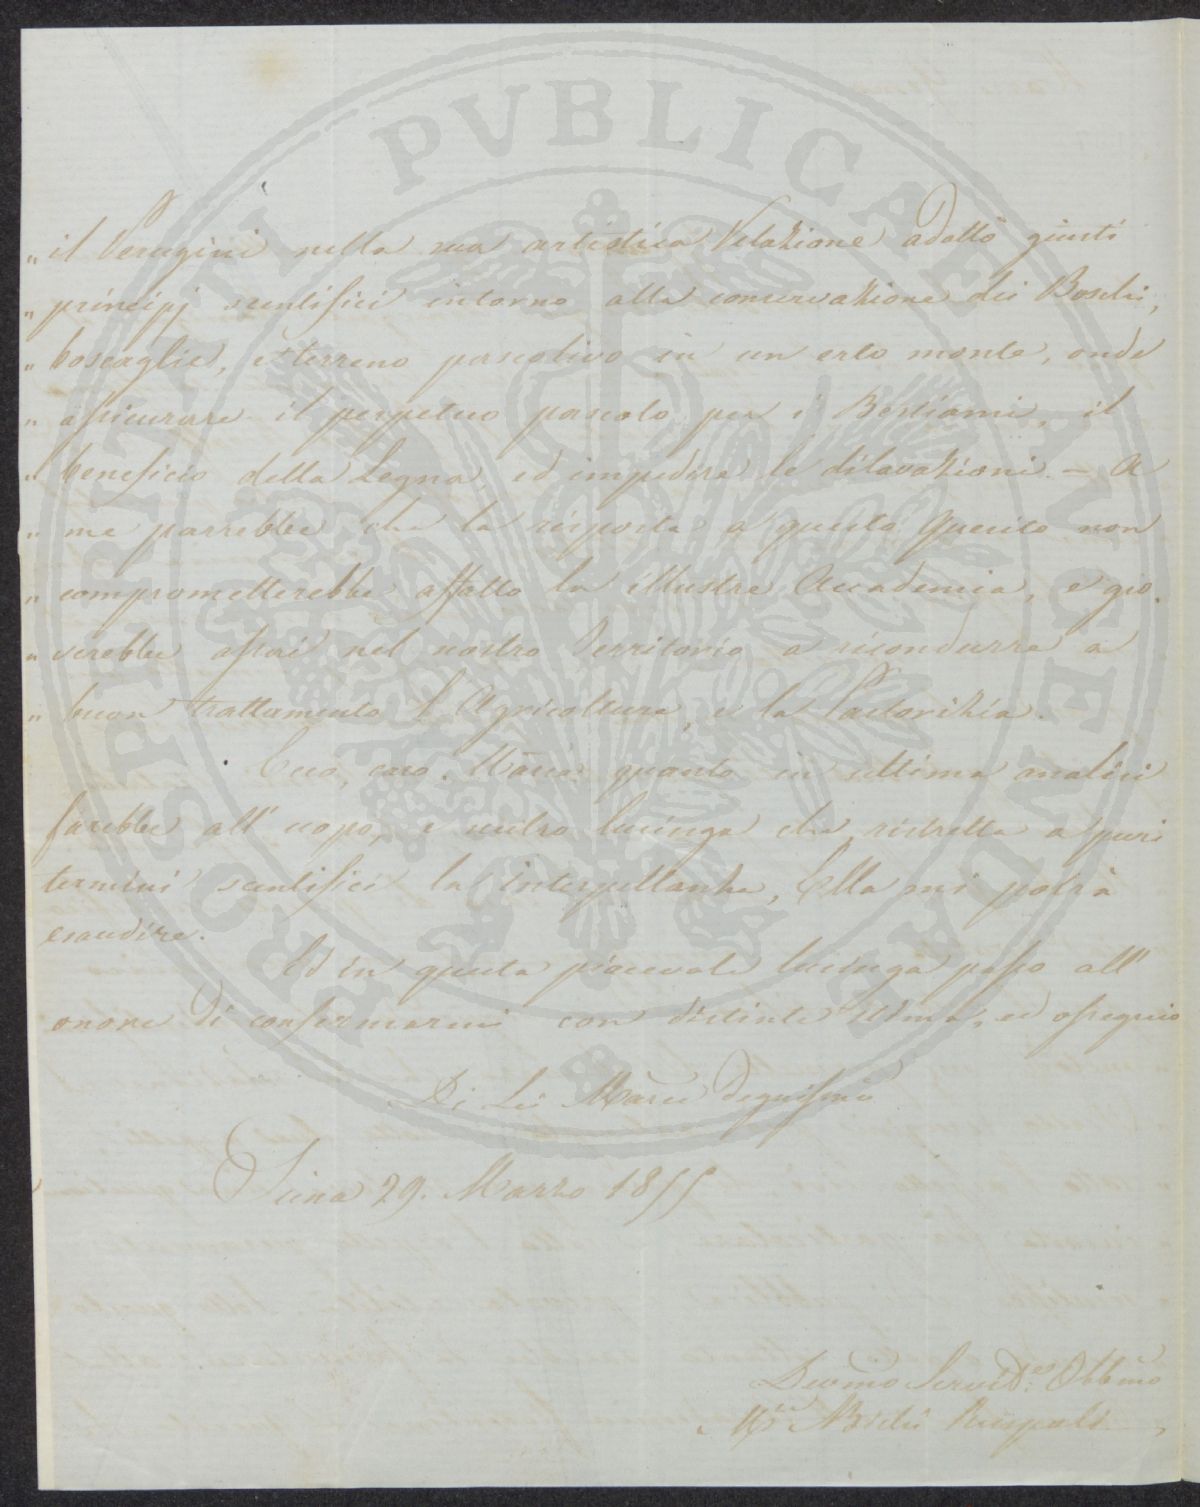 PROSPERITATI PVBLICAE AVGENDAE
„ il Perugini nella sua artistica Relazione adottò giusti
„ principj scentifici intorno alla conservazione dei Boschi,
„ boscaglie, e terreno pascolivo in un erto monte, onde
„ assicurare il perpetuo pascolo per i Bestiami, il
„ beneficio della Legna, ed impedire le dilavazioni. – A
„ me parrebbe che la risposta a questo Quesito non
„ comprometterebbe affatto la illustre Accademia, e gio-
„ verebbe assai nel nostro Territorio a ricondurre a
„ buon trattamento l'Agricoltura, e la Pastorizia.
Ecco, caro Marchese quanto in ultima analisi
farebbe all'uopo, e nutro lusinga che ristretta a puri
termini scentifici la interpellanza, Ella mi potrà
esaudire.
Ed in questa piacevole lusinga passo all'
onore di confermarmi con distinta stima, ed ossequio
Di Lei March Degnissimo
Siena 29. Marzo 1855
Devmo Servit.e Obbmo